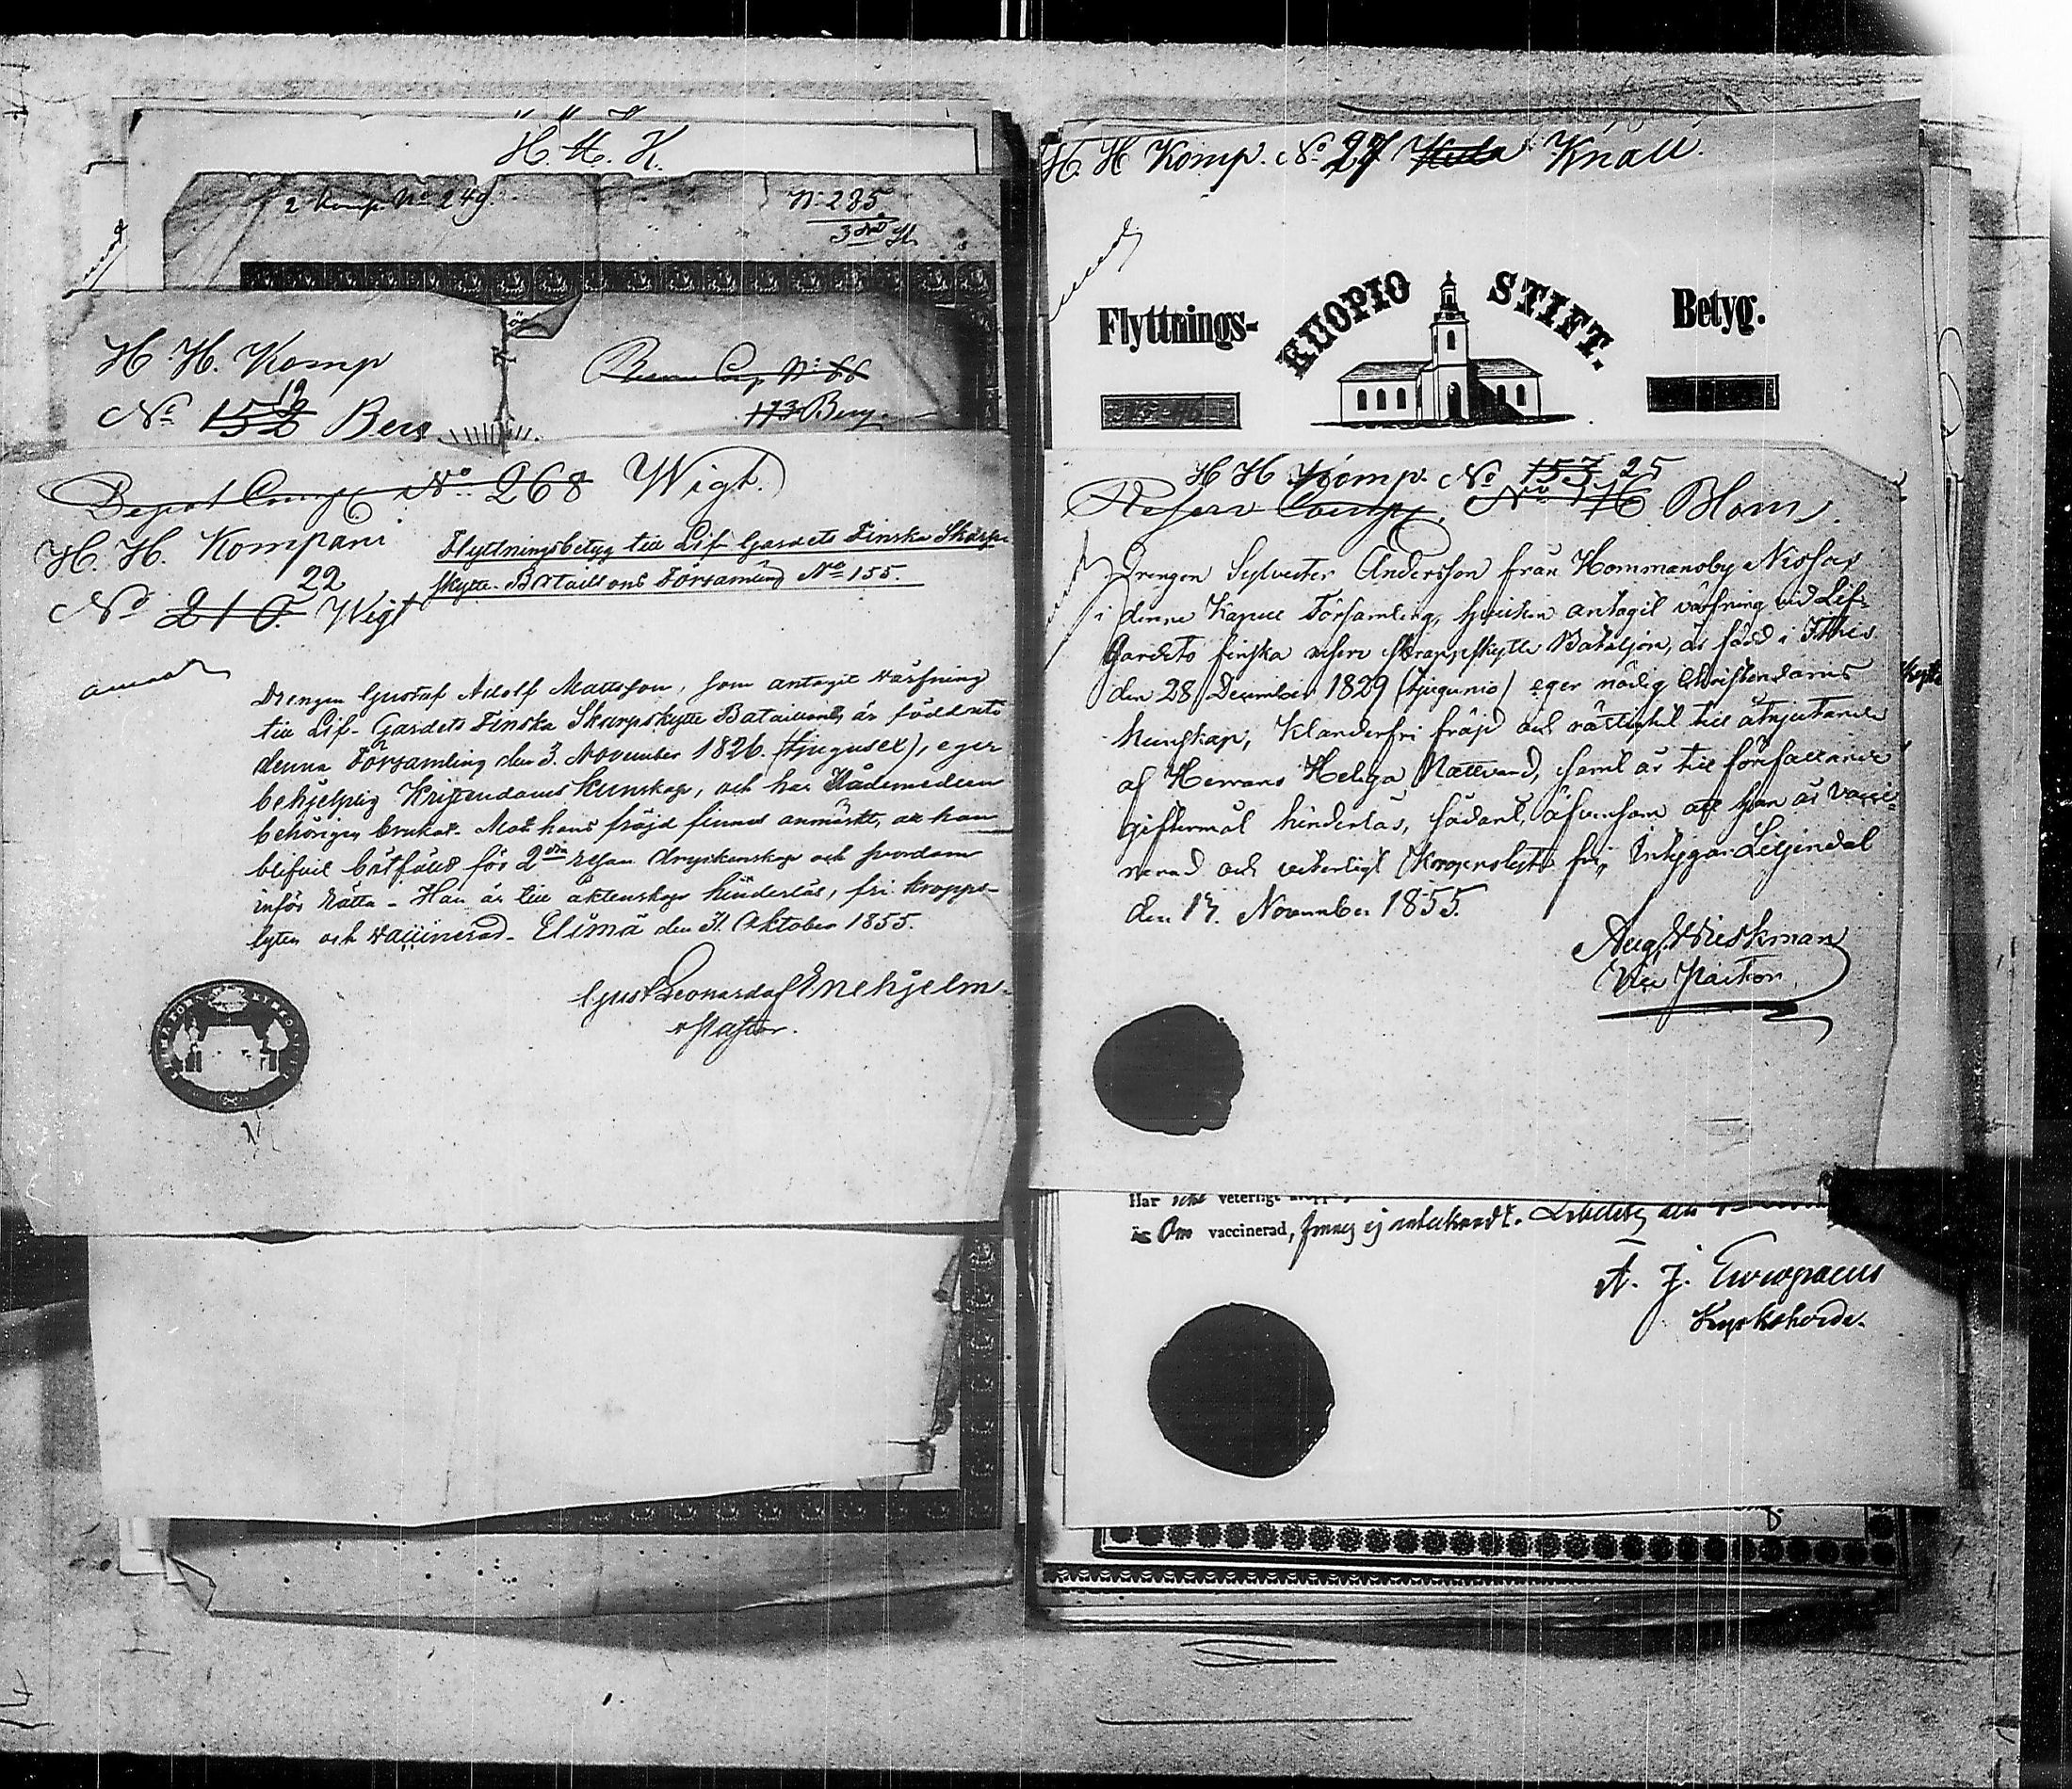 H. H. K.
2 Komp. No 249.
N: 285
3 H.
H. H. Komp
12
No 152 Berg
Reserv Comp N: 66
173 Berg.
Depot Comp. No: 268 Wigt.
H. H. Kompani
22
No 210. Wigt
Flyttningsbetyg till Lif-Gardets Finska Skarp-
skytte-Bataillons Församling No 155.
Drengen Gustaf Adolf Mattsson, som antagit värfning
till Lif-Gardets Finska Skarpskytte Bataillon, är född uti
denna Församling den 3. November 1826. (tjugusex), eger
behjelplig Kristendoms kunskap, och har Nådemedlen
behörigen brukat. Mot hans fräjd finnes anmärkt, at han
blifvit bötfäld för 2dra resan dryckenskap och svordom
inför Rätta - Han är till äktenskap hinderlös, fri kropps-
lyten och vaccinerad. Elimä den 31. Oktober 1855.
Gust Leonard af Enehjelm.
Pastor.
H. H Komp. No 27 Knall.
Flyttnings- KUOPIO STIFT. Betyg.
H H Komp. No 153 25
Reserv Comp. No 176 Blom.
Drengen Sylvester Andersson från Hommansby Nissas
i denne Kapell Församling, hvilken antagit värfning vid Lif-
Gardets finska reserv Skarpskytte Bataljon, är född i Ithis
den 28 December 1829 (tjugunio) eger nödig Christendoms
kunskap, Klanderfri fräjd och rättighet till åtnjutande
af Herrans Heliga Nattvard, samt är till förfallande
giftermål hinderlös, sådant, äfvensom att han är vacci-
nerad och veterligt Kroppslyte fri, intygar Liljendal
den 17. November 1855.
Aug. Wieskman
Vice Pastor.
Har icke veterligt
är Om vaccinerad, finnes ej antecknadt. Libelits den
A. J. Europaeus
Kyrkoherde.